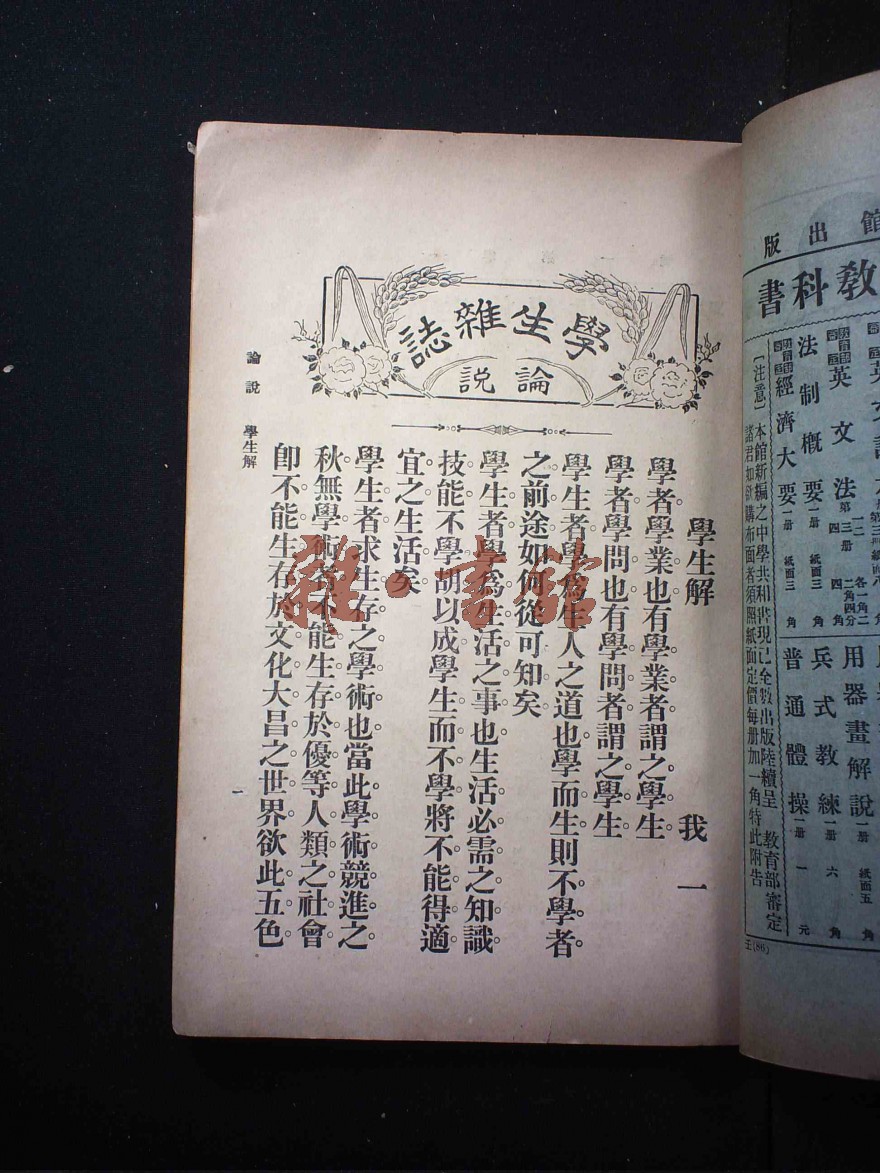 館出版
教科書
英文法
法制概要 一册 紙面三角
經濟大要 一册 紙面三角
〔注意〕本館新編之中學共和書現已全數出版陸續呈 教育部審定
諸君如欲購布面者須照紙面定價每册加一角特此附告
用器畫解說 一册 紙面五角
兵式教練 一册 六角
普通體操 一册 一元
學生雜誌
論說
學生解
我一
學者學業也有學業者謂之學生
學者學問也有學問者謂之學生
學生者學為生人之道也學而生則不學者
之前途如何從可知矣
學生者學為生活之事也生活必需之知識
技能不學胡以成學生而不學將不能得適
宜之生活矣
學生者求生存之學術也當此學術競進之
秋無學術者不能生存於優等人類之社會
卽不能生存於文化大昌之世界欲此五色
論說 學生解
一
雜·書館